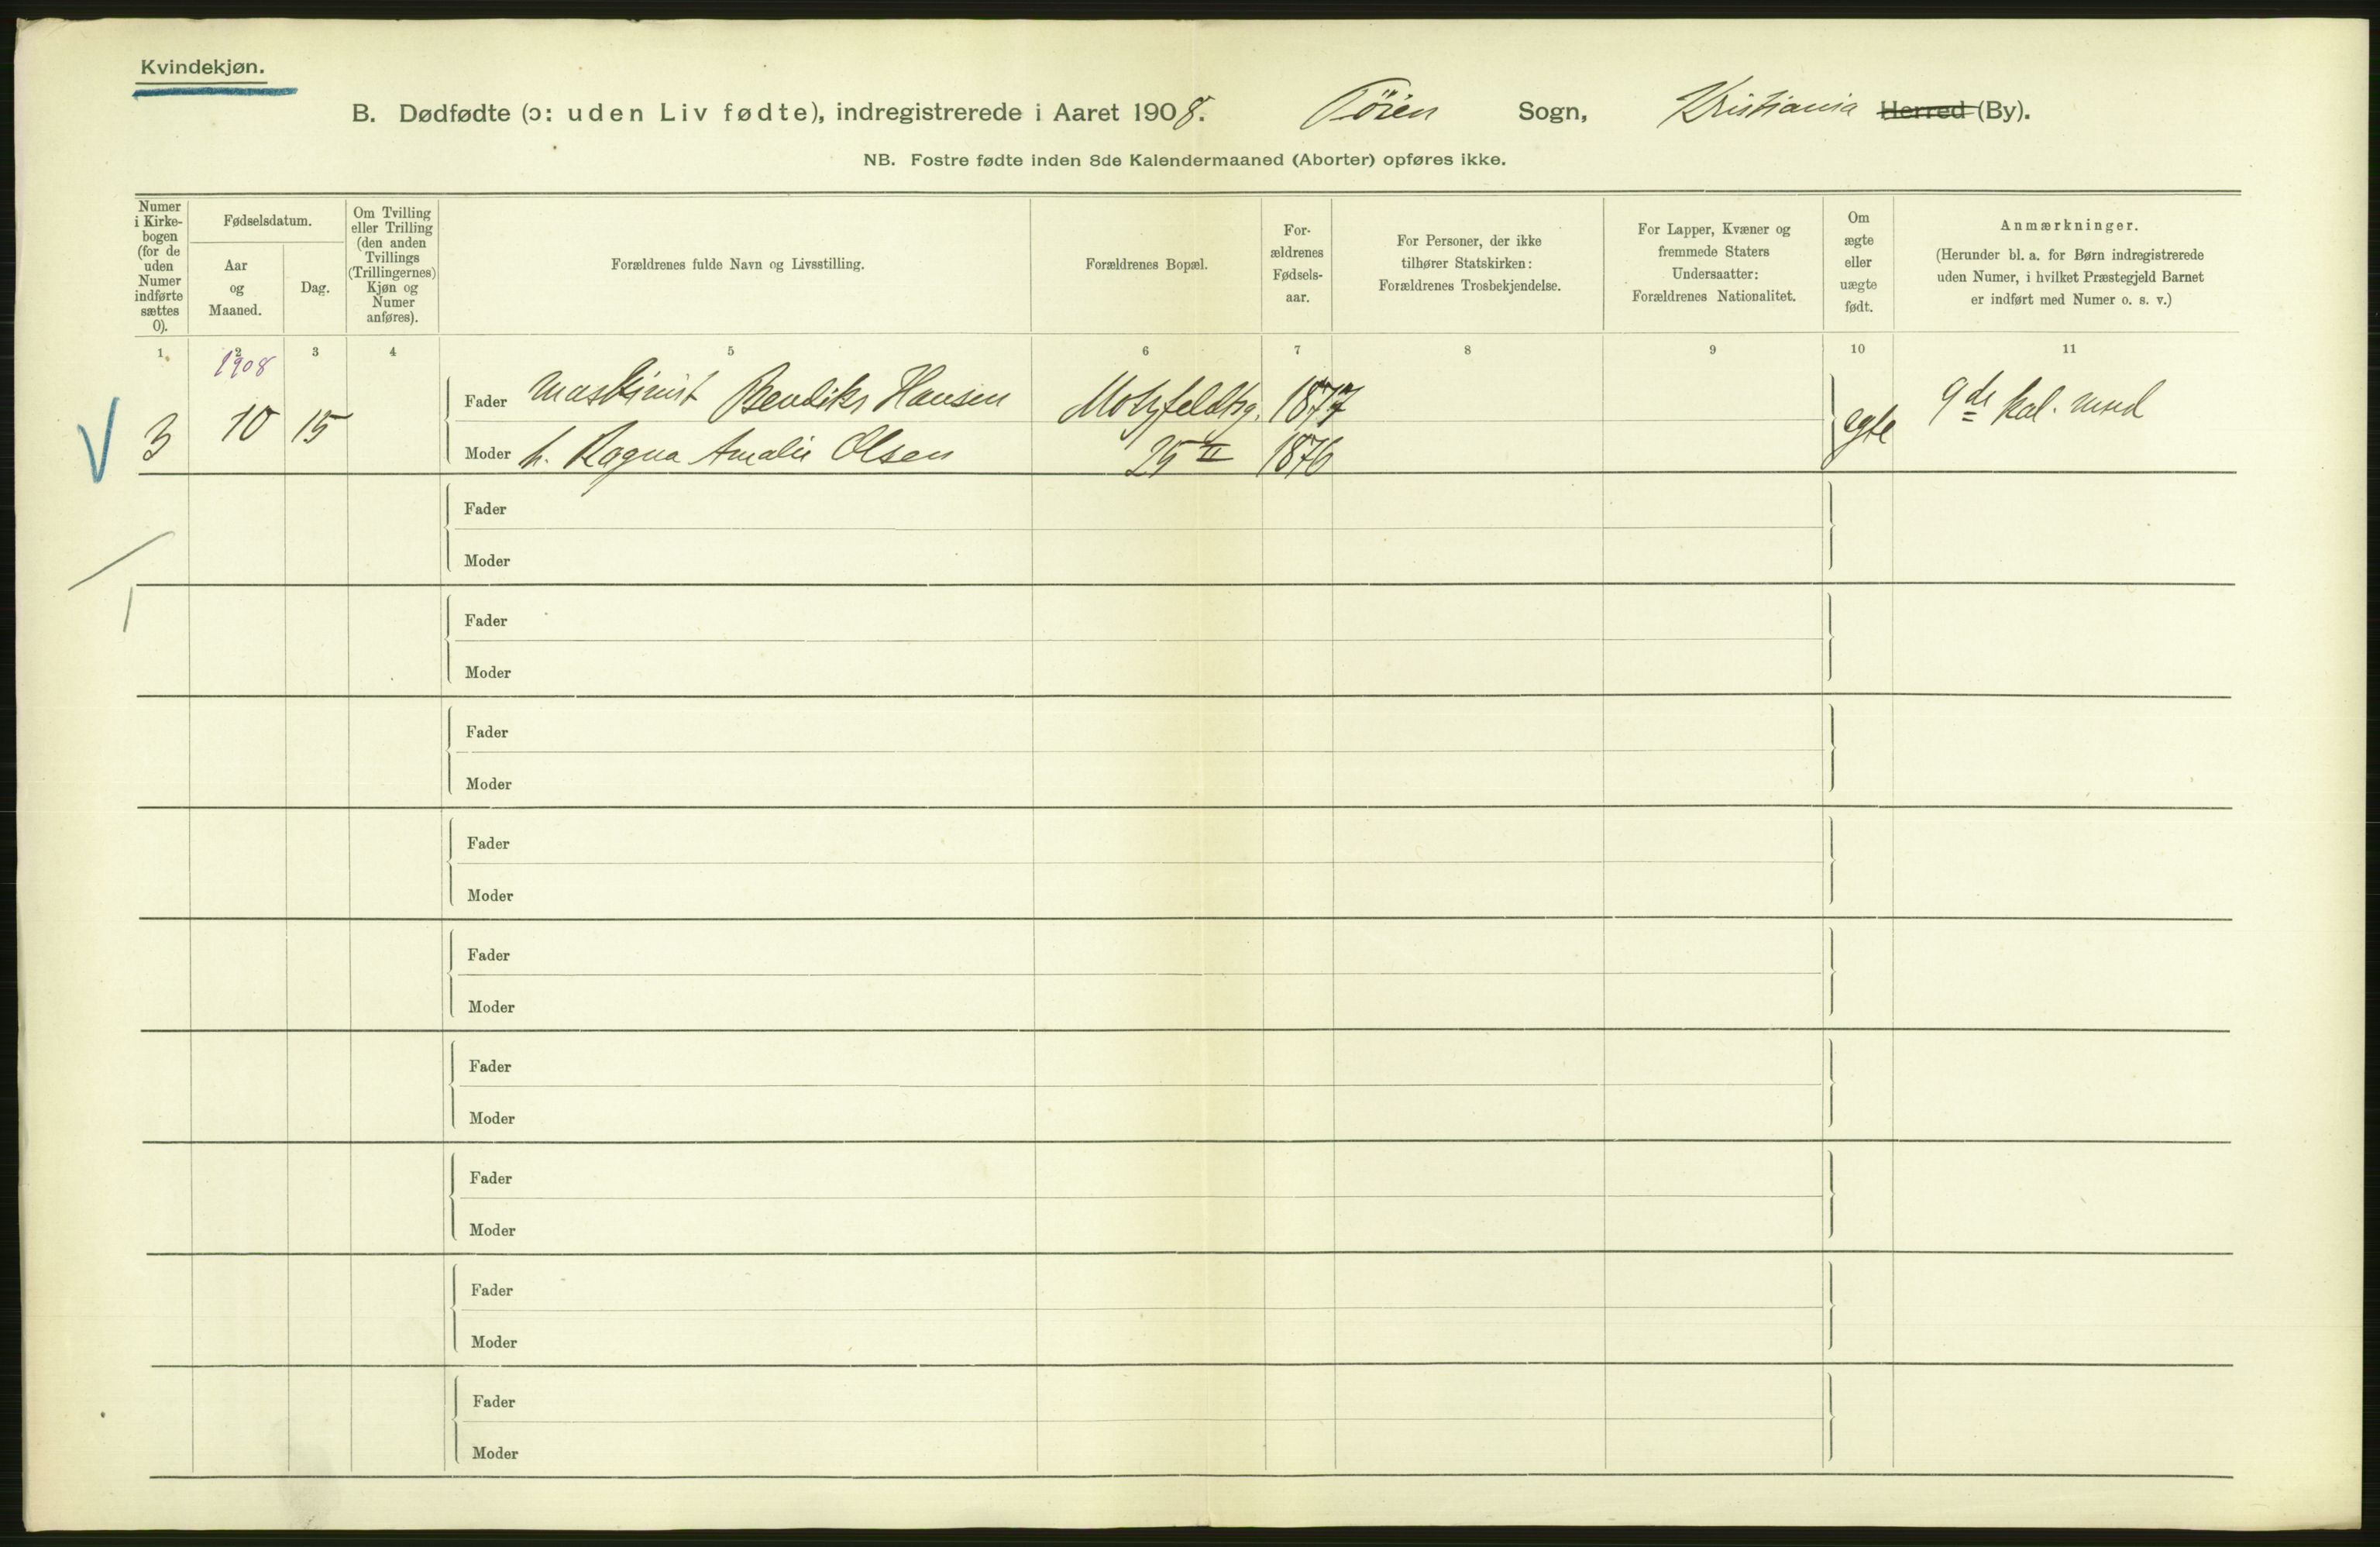 Kvindekjøn.
B. Dødfødte (ɔ: uden Liv fødte), indregistrerede i Aaret 1908. Töien Sogn, Kristiania Herred (By).
NB. Fostre fødte inden 8de Kalendermaaned (Aborter) opføres ikke.
Numer
i Kirke-
bogen
(for de
uden
Numer
indførte
sættes
0).
Fødselsdatum.
Aar
og
Maaned.
Dag.
Om Tvilling
eller Trilling
(den anden
Tvillings
(Trillingernes)
Kjøn og
Numer
anføres).
Forældrenes fulde Navn og Livsstilling.
Forældrenes Bopæl.
For-
ældrenes
Fødsels-
aar.
For Personer, der ikke
tilhører Statskirken:
Forældrenes Trosbekjendelse.
For Lapper, Kvæner og
fremmede Staters
Undersaatter:
Forældrenes Nationalitet.
Om
ægte
eller
uægte
født.
Anmærkninger.
(Herunder bl. a. for Børn indregistrerede
uden Numer, i hvilket Præstegjeld Barnet
er indført med Numer o. s. v.)
1. 2 3 4 5 6 7 8 9 10 11
1908
Fader Maskinist Bendiks Hansen Motzfeldtsg. 1877
3 10 15 ægte 9de kal. mnd
Moder h. Ragna Amalie Olsen 25 II 1876
Fader
Moder
Fader
Moder
Fader
Moder
Fader
Moder
Fader
Moder
Fader
Moder
Fader
Moder
Fader
Moder
Fader
Moder